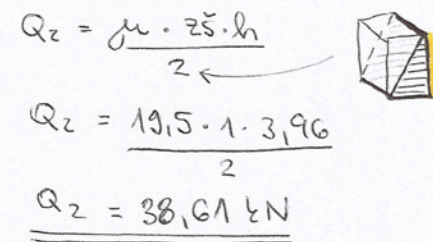 Q₂ = μ · zš · h / 2
Q₂ = 19,5 · 1 · 3,96 / 2
Q₂ = 38,61 kN